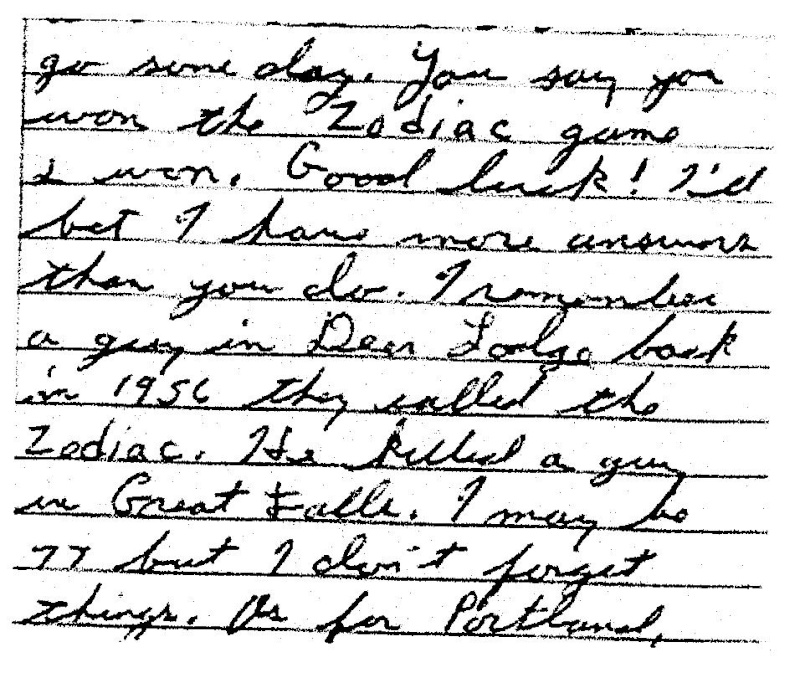 go some day. You say you
won the Zodiac game
I won. Good luck! I'll
bet I have more answers
than you do. I remember
a guy in Deer Lodge back
in 1956 they called the
Zodiac. He killed a guy
in Great Falls. I may be
77 but I don't forget
things. As for Portland,